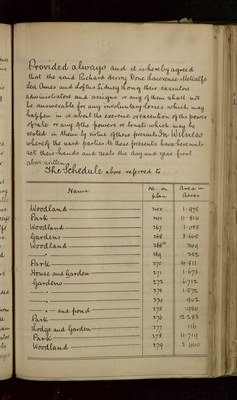 Provided always and it is hereby agreed
that the said Richard Henry Vone Lawrence Metcalfe
Leo Ames and Loftus Sidney Long their executors
administrators and assigns or any of them shall not
be answerable for any involuntary losses which may
happen in or about the exercise or execution of the power
of sale or any of the powers or trusts which may be
vested in them by virtue of these presents In Witness
whereof the said parties to these presents have hereunto
set their hands and seals the day and year first
above written
The Schedule above referred to
Name No. on plan Area in Acres
Woodland
Park
Woodland 267
Gardens 268
Woodland
269
Park 270
House and Garden 271 1.678
Gardens 272 6.712
" 273 1.572
" 274 .902
" and pond 275 .980
Park 276 12.283
Lodge and Garden 277 .116
Park 278 11.719
Woodland 279